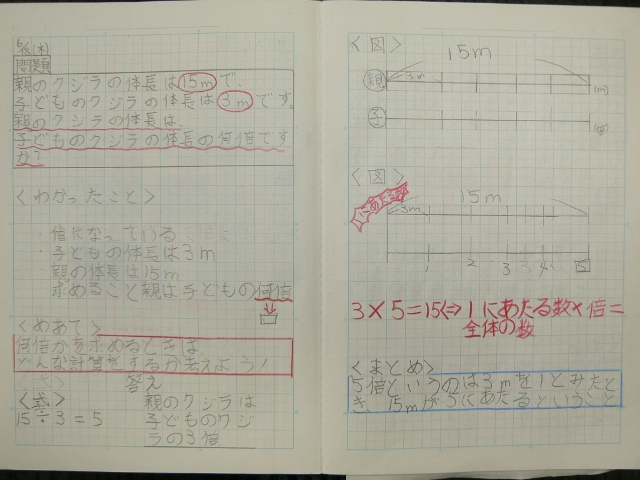 6/8(木)
問題
親のクジラの体長は15mで、
子どものクジラの体長は3mです。
親のクジラの体長は、
子どものクジラの体長の何倍です
か?
<わかったこと>
・倍になっている
・子どもの体長は3m
・親の体長は15m
・求めること親は子どもの何倍
<めあて>
何倍かを求めるときは
どんな計算をするか考えよう!
<式>
答え
15÷3=5
親のクジラは
子どものクジ
ラの3倍
<図>
15m
親
3m
(m)
子
<図>
15m
1にあたる数
3m
1 2 3 4 5
3×5=15⇔1にあたる数×倍=
全体の数
<まとめ>
5倍というのは3mを1とみたと
き、15mが5にあたるということ